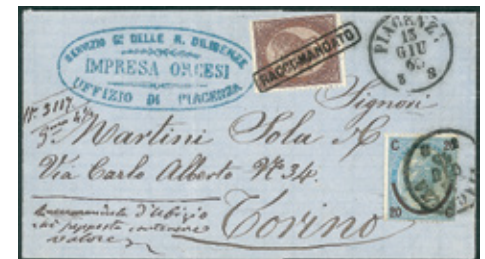 SERVIZIO Gᴱ DELLE R. DILIGENZE
IMPRESA ORCESI
UFFIZIO DI PIACENZA
RACCOMANDATO
PIACENZA
13
GIU
65
8 S
Nº 3117
Signori
Martini Sola & C
Via Carlo Alberto Nº 34.
Torino
C 20
20 C
Raccomandata d'Ufizio